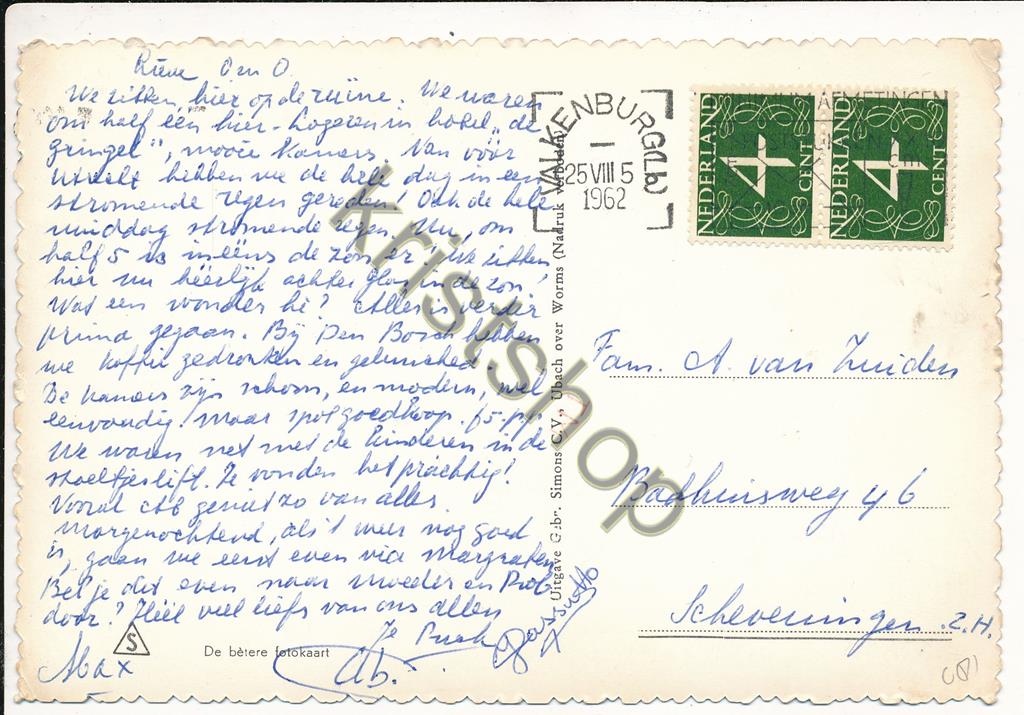 Lieve O en O
We zitten, hier op de ruïne. We waren
om half een hier. Logeren in hotel "de
Gringel", mooie kamers. Van vóór
Utrecht hebben we de hele dag in een
stromende regen gereden! Ook de hele
middag stromende regen. Nu, om
half 5 is ineens de zon er! We zitten
hier nu héérlijk achter glas in de zon!
Wat een wonder hè? Alles is verder
prima gegaan. Bij Den Bosch hebben
we koffie gedronken en geluncht.
De kamers zijn schoon, en modern, wel
eenvoudig. Maar spotgoedkoop. f5.- p.p.
We waren net met de kinderen in de
stoeltjeslift. Ze vonden het práchtig!
Vooral Ab geniet zo van alles.
Morgenochtend, als 't weer nog goed
is, gaan we eerst even via Margraten
Bel je dit even naar Moeder en Rob
door? Héél veel liefs van ons allen
Je Puck
Ab.
Max
S
De bètere fotokaart
Uitgave Gebr. Simons C.V., Ubach over Worms (Nadruk verboden)
VALKENBURG (Lb)
25 VIII 5
1962
AFMETINGEN
NEDERLAND
4
CENT
NEDERLAND
4
CENT
Fam. A. van Zuiden
Badhuisweg 46
Scheveningen. Z.H.
kristshop